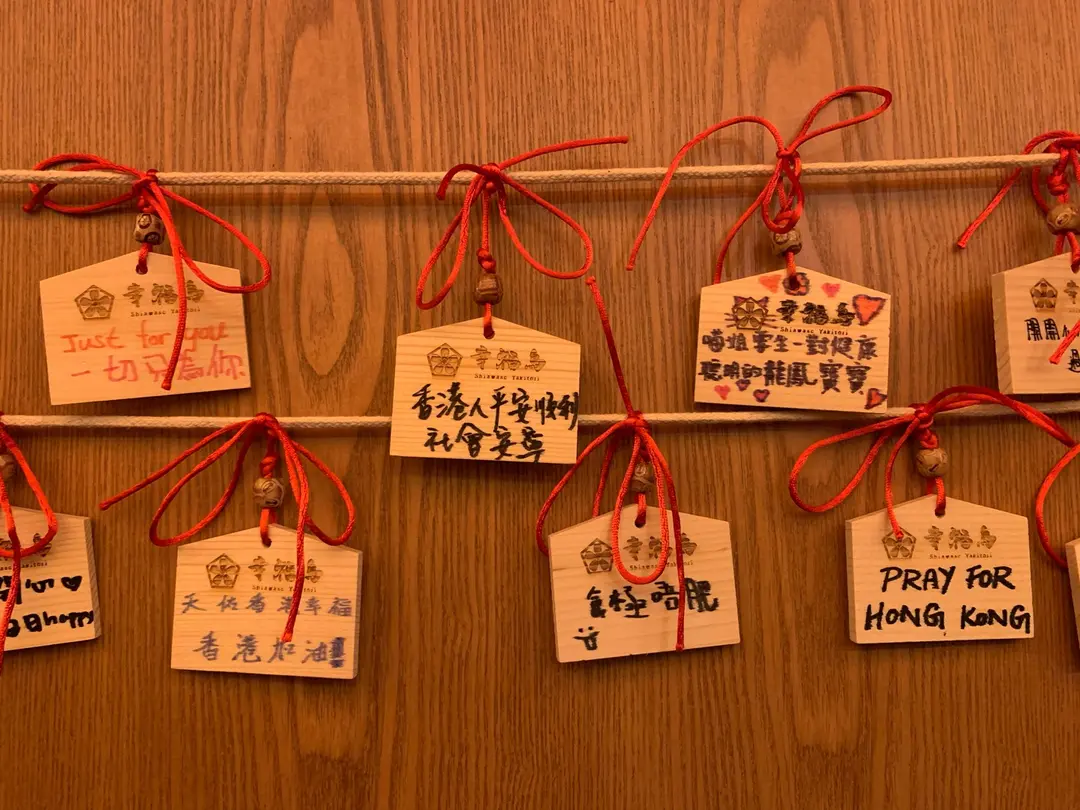 幸福鳥
Shiawase Yakitori
Just for you
一切只為你
幸福鳥
Shiawase Yakitori
香港人平安順利
社會安寧
幸福鳥
Shiawase Yakitori
喵姐孕生一對健康
聰明的龍鳳寶寶
開開
心♥
日日happy
幸福鳥
Shiawase Yakitori
天佑香港幸福
香港加油
幸福鳥
Shiawase Yakitori
食極唔肥
幸福鳥
Shiawase Yakitori
PRAY FOR
HONG KONG